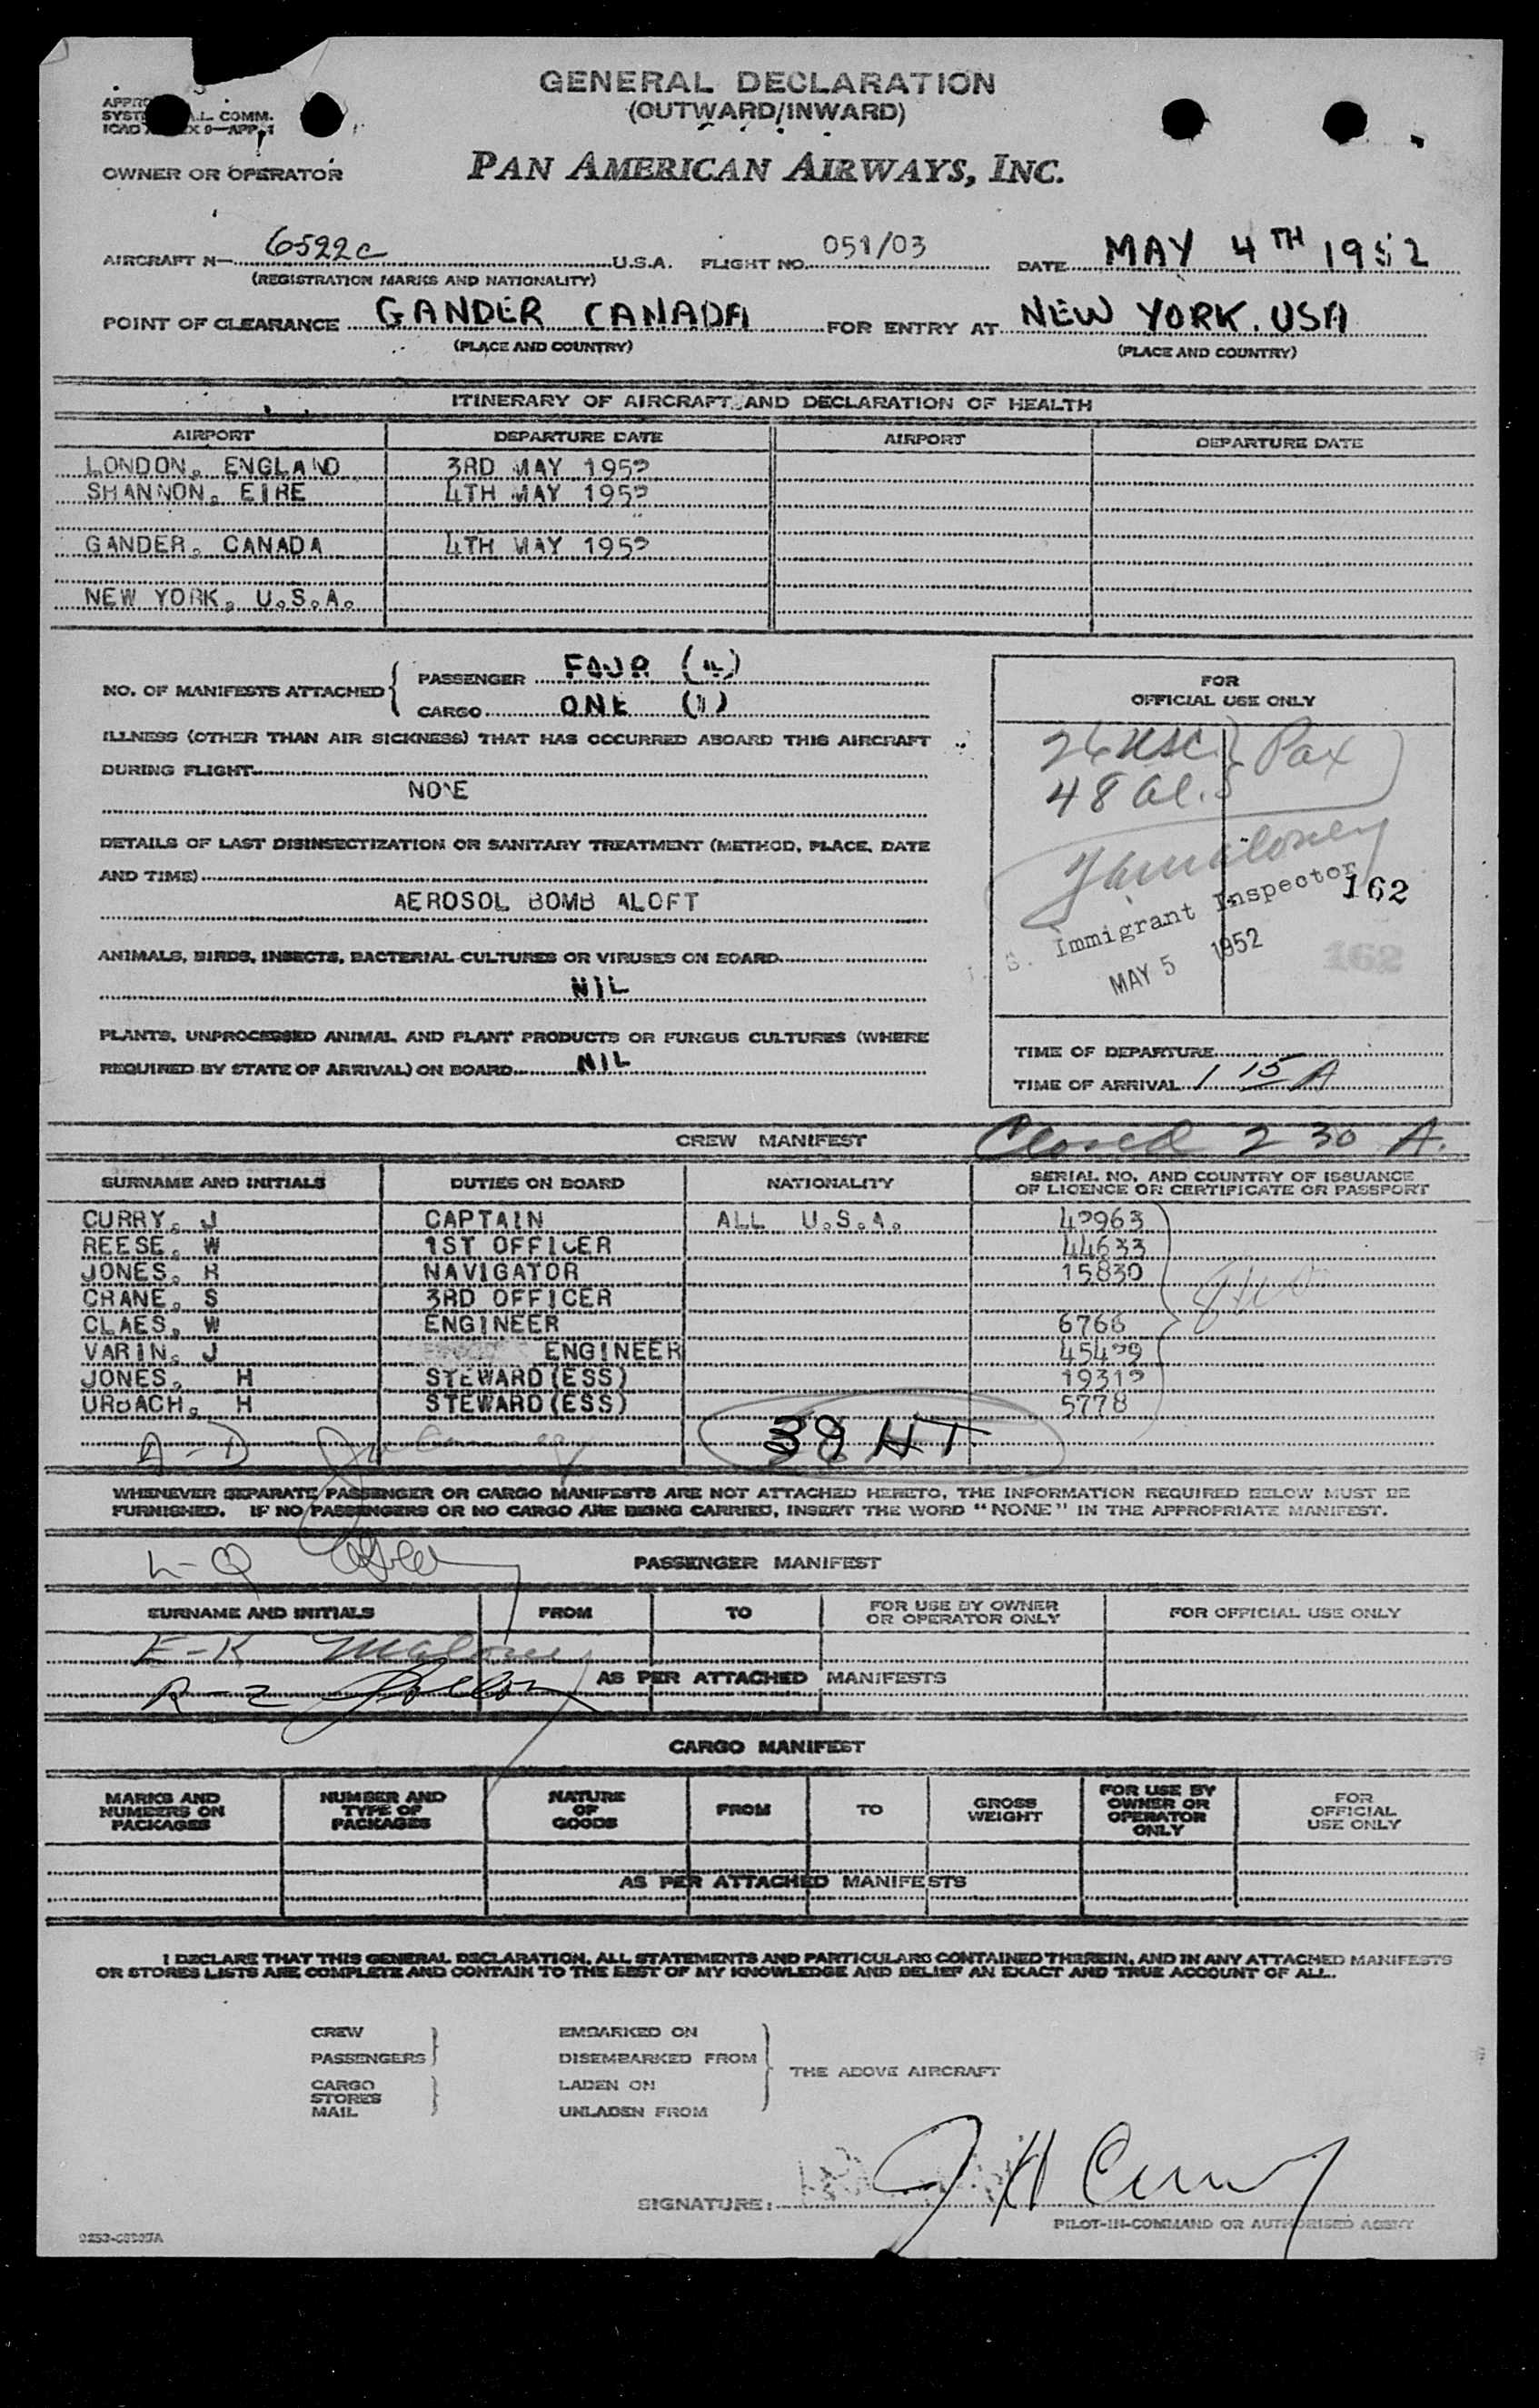 GENERAL DECLARATION
(OUTWARD/INWARD)
L. COMM.
OWNER OR OPERATOR PAN AMERICAN AIRWAYS, INC.
AIRCRAFT N— 6522C U.S.A. FLIGHT NO. 051/03 DATE MAY 4TH 1952
(REGISTRATION MARKS AND NATIONALITY)
POINT OF CLEARANCE GANDER CANADA FOR ENTRY AT NEW YORK, USA
(PLACE AND COUNTRY) (PLACE AND COUNTRY)
ITINERARY OF AIRCRAFT AND DECLARATION OF HEALTH
AIRPORT DEPARTURE DATE AIRPORT DEPARTURE DATE
LONDON, ENGLAND 3RD MAY 1952
SHANNON, EIRE 4TH MAY 1952
GANDER, CANADA 4TH MAY 1952
NEW YORK, U.S.A.
NO. OF MANIFESTS ATTACHED { PASSENGER FOUR (4)
CARGO ONE (1)
ILLNESS (OTHER THAN AIR SICKNESS) THAT HAS OCCURRED ABOARD THIS AIRCRAFT
DURING FLIGHT
NONE
DETAILS OF LAST DISINSECTIZATION OR SANITARY TREATMENT (METHOD, PLACE, DATE
AND TIME)
AEROSOL BOMB ALOFT
ANIMALS, BIRDS, INSECTS, BACTERIAL CULTURES OR VIRUSES ON BOARD
NIL
PLANTS, UNPROCESSED ANIMAL AND PLANT PRODUCTS OR FUNGUS CULTURES (WHERE
REQUIRED BY STATE OF ARRIVAL) ON BOARD NIL
FOR
OFFICIAL USE ONLY
26 USC } Pax
48 Al.
Maloney
S. Immigrant Inspector 162
MAY 5 1952 162
TIME OF DEPARTURE
TIME OF ARRIVAL 1 15 A
Closed 2 30 A.
CREW MANIFEST
SURNAME AND INITIALS DUTIES ON BOARD NATIONALITY SERIAL NO. AND COUNTRY OF ISSUANCE
OF LICENCE OR CERTIFICATE OR PASSPORT
CURRY, J CAPTAIN ALL U.S.A. 42963
REESE, W 1ST OFFICER 44633
JONES, R NAVIGATOR 15830
CRANE, S 3RD OFFICER
CLAES, W ENGINEER 6766
VARIN, J ENGINEER 45429
JONES, H STEWARD(ESS) 19312
URBACH, H STEWARD(ESS) 5778
A-D 39 HT
WHENEVER SEPARATE PASSENGER OR CARGO MANIFESTS ARE NOT ATTACHED HERETO, THE INFORMATION REQUIRED BELOW MUST BE
FURNISHED. IF NO PASSENGERS OR NO CARGO ARE BEING CARRIED, INSERT THE WORD "NONE" IN THE APPROPRIATE MANIFEST.
L-Q PASSENGER MANIFEST
SURNAME AND INITIALS FROM TO FOR USE BY OWNER
OR OPERATOR ONLY FOR OFFICIAL USE ONLY
E-K Maloney
R-Z AS PER ATTACHED MANIFESTS
CARGO MANIFEST
MARKS AND
NUMBERS ON
PACKAGES
NUMBER AND
TYPE OF
PACKAGES
NATURE
OF
GOODS
FROM
TO
GROSS
WEIGHT
FOR USE BY
OWNER OR
OPERATOR
ONLY
FOR
OFFICIAL
USE ONLY
AS PER ATTACHED MANIFESTS
I DECLARE THAT THIS GENERAL DECLARATION, ALL STATEMENTS AND PARTICULARS CONTAINED THEREIN, AND IN ANY ATTACHED MANIFESTS
OR STORES LISTS ARE COMPLETE AND CONTAIN TO THE BEST OF MY KNOWLEDGE AND BELIEF AN EXACT AND TRUE ACCOUNT OF ALL.
CREW EMBARKED ON
PASSENGERS DISEMBARKED FROM
THE ABOVE AIRCRAFT
CARGO LADEN ON
STORES
MAIL UNLADEN FROM
SIGNATURE: J H Curry
PILOT-IN-COMMAND OR AUTHORISED AGENT